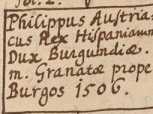 Philippus Austria=
cus Rex Hispaniarum
Dux Burgundiæ.
m. Granatæ prope
Burgos 1506.